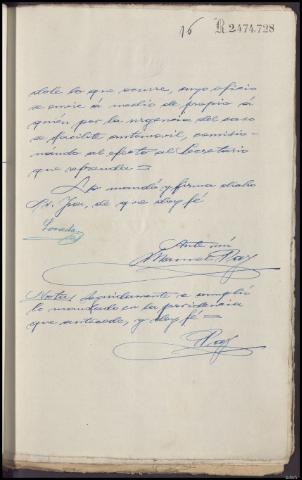 16 R 2474.728
dole lo que ocurre, cuyo oficio
se envie á medio de propio á
quién por la urgencia del caso
se facilite automovil, comisio-
nándo al efecto al Secretario
que refrenda =
Lo mandó y firma dicho
Sr. Juez, de que doy fé
Losada
Ante mi
Manuel Rey
Nota/ Seguidamente se cumplió
lo mandado en la providencia
que antecede, y doy fé =
Rey